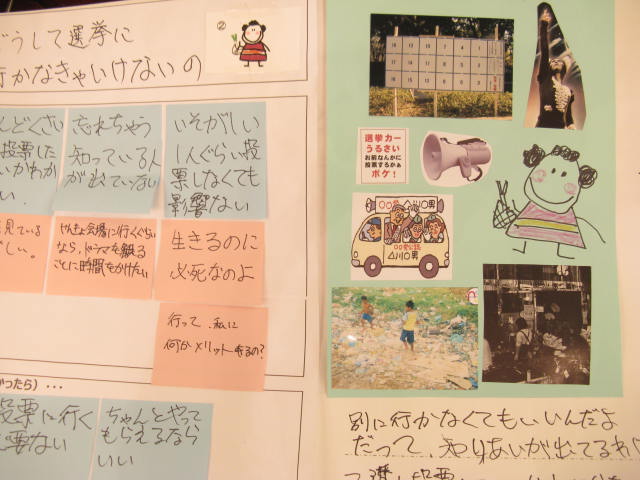 どうして選挙に
行かなきゃいけないの
②
んどくさい
投票した
いかわか
い.
忘れちゃう
知っている人
が出ていない
いそがしい
1人ぐらい投
票しなくても
影響ない
見ている
しい。
せんきょ会場に行くぐらい
なら、ドラマを観る
ことに時間をかけたい
生きるのに
必死なのよ
行って、私に
何かメリットあるの?
かったら)...
投票に行く
必要ない
ちゃんとやって
もらえるなら
いい
選挙カー
うるさい
お前なんかに
投票するかぁ
ボケ!
〇〇党 △川〇男
〇〇党公認
△川〇男
別に行かなくてもいいんだよ
だって、知りあいが出てるわけ